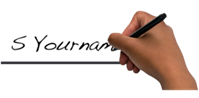 S Yournam